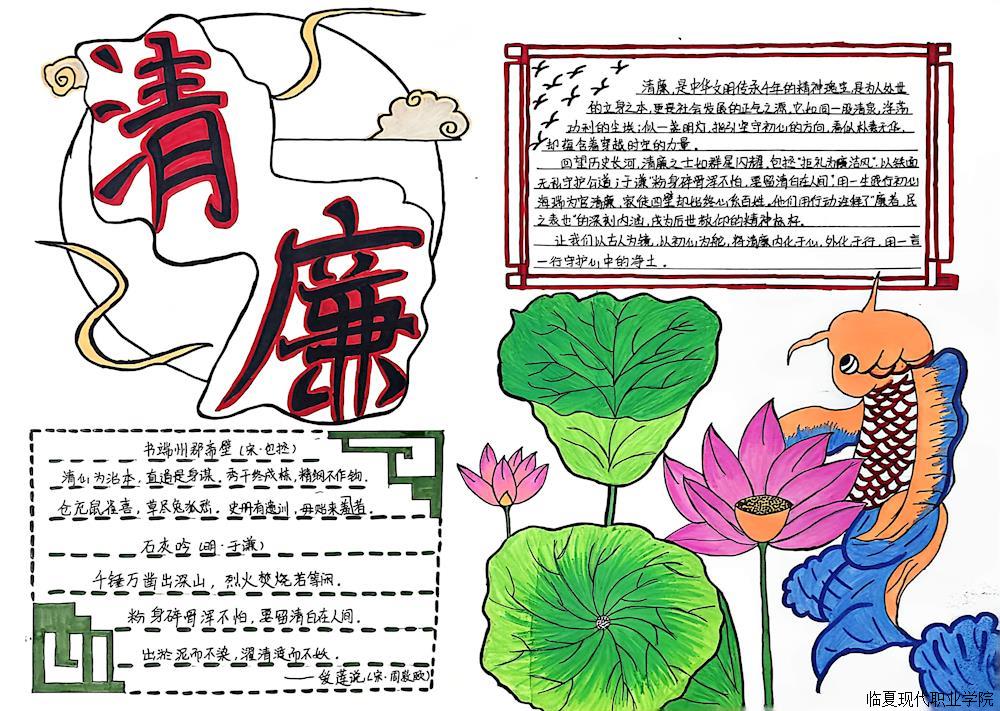 清
廉
清廉，是中华文明传承千年的精神瑰宝，是为人处世
的立身之本，更是社会发展的正气之源。它如同一股清泉，涤荡
功利的尘埃；似一盏明灯，指引坚守初心的方向，看似朴素无华，
却蕴含着穿越时空的力量。
回望历史长河，清廉之士如群星闪耀，包拯“拒礼为廉洁风”，以铁面
无私守护公道；于谦“粉身碎骨浑不怕，要留清白在人间”，用一生践行初心
海瑞为官清廉，家徒四壁却始终心系百姓。他们用行动诠释了“廉者，民
之表也”的深刻内涵，成为后世敬仰的精神标杆。
让我们以古人为镜，以初心为舵，将清廉内化于心，外化于行，用一言
一行守护心中的净土。
书端州郡斋壁（宋·包拯）
清心为治本，直道是身谋。秀干终成栋，精钢不作钩。
仓充鼠雀喜，草尽兔狐愁。史册有遗训，毋贻来者羞。
石灰吟（明·于谦）
千锤万凿出深山，烈火焚烧若等闲。
粉身碎骨浑不怕，要留清白在人间。
出淤泥而不染，濯清涟而不妖。
——爱莲说（宋·周敦颐）
临夏现代职业学院